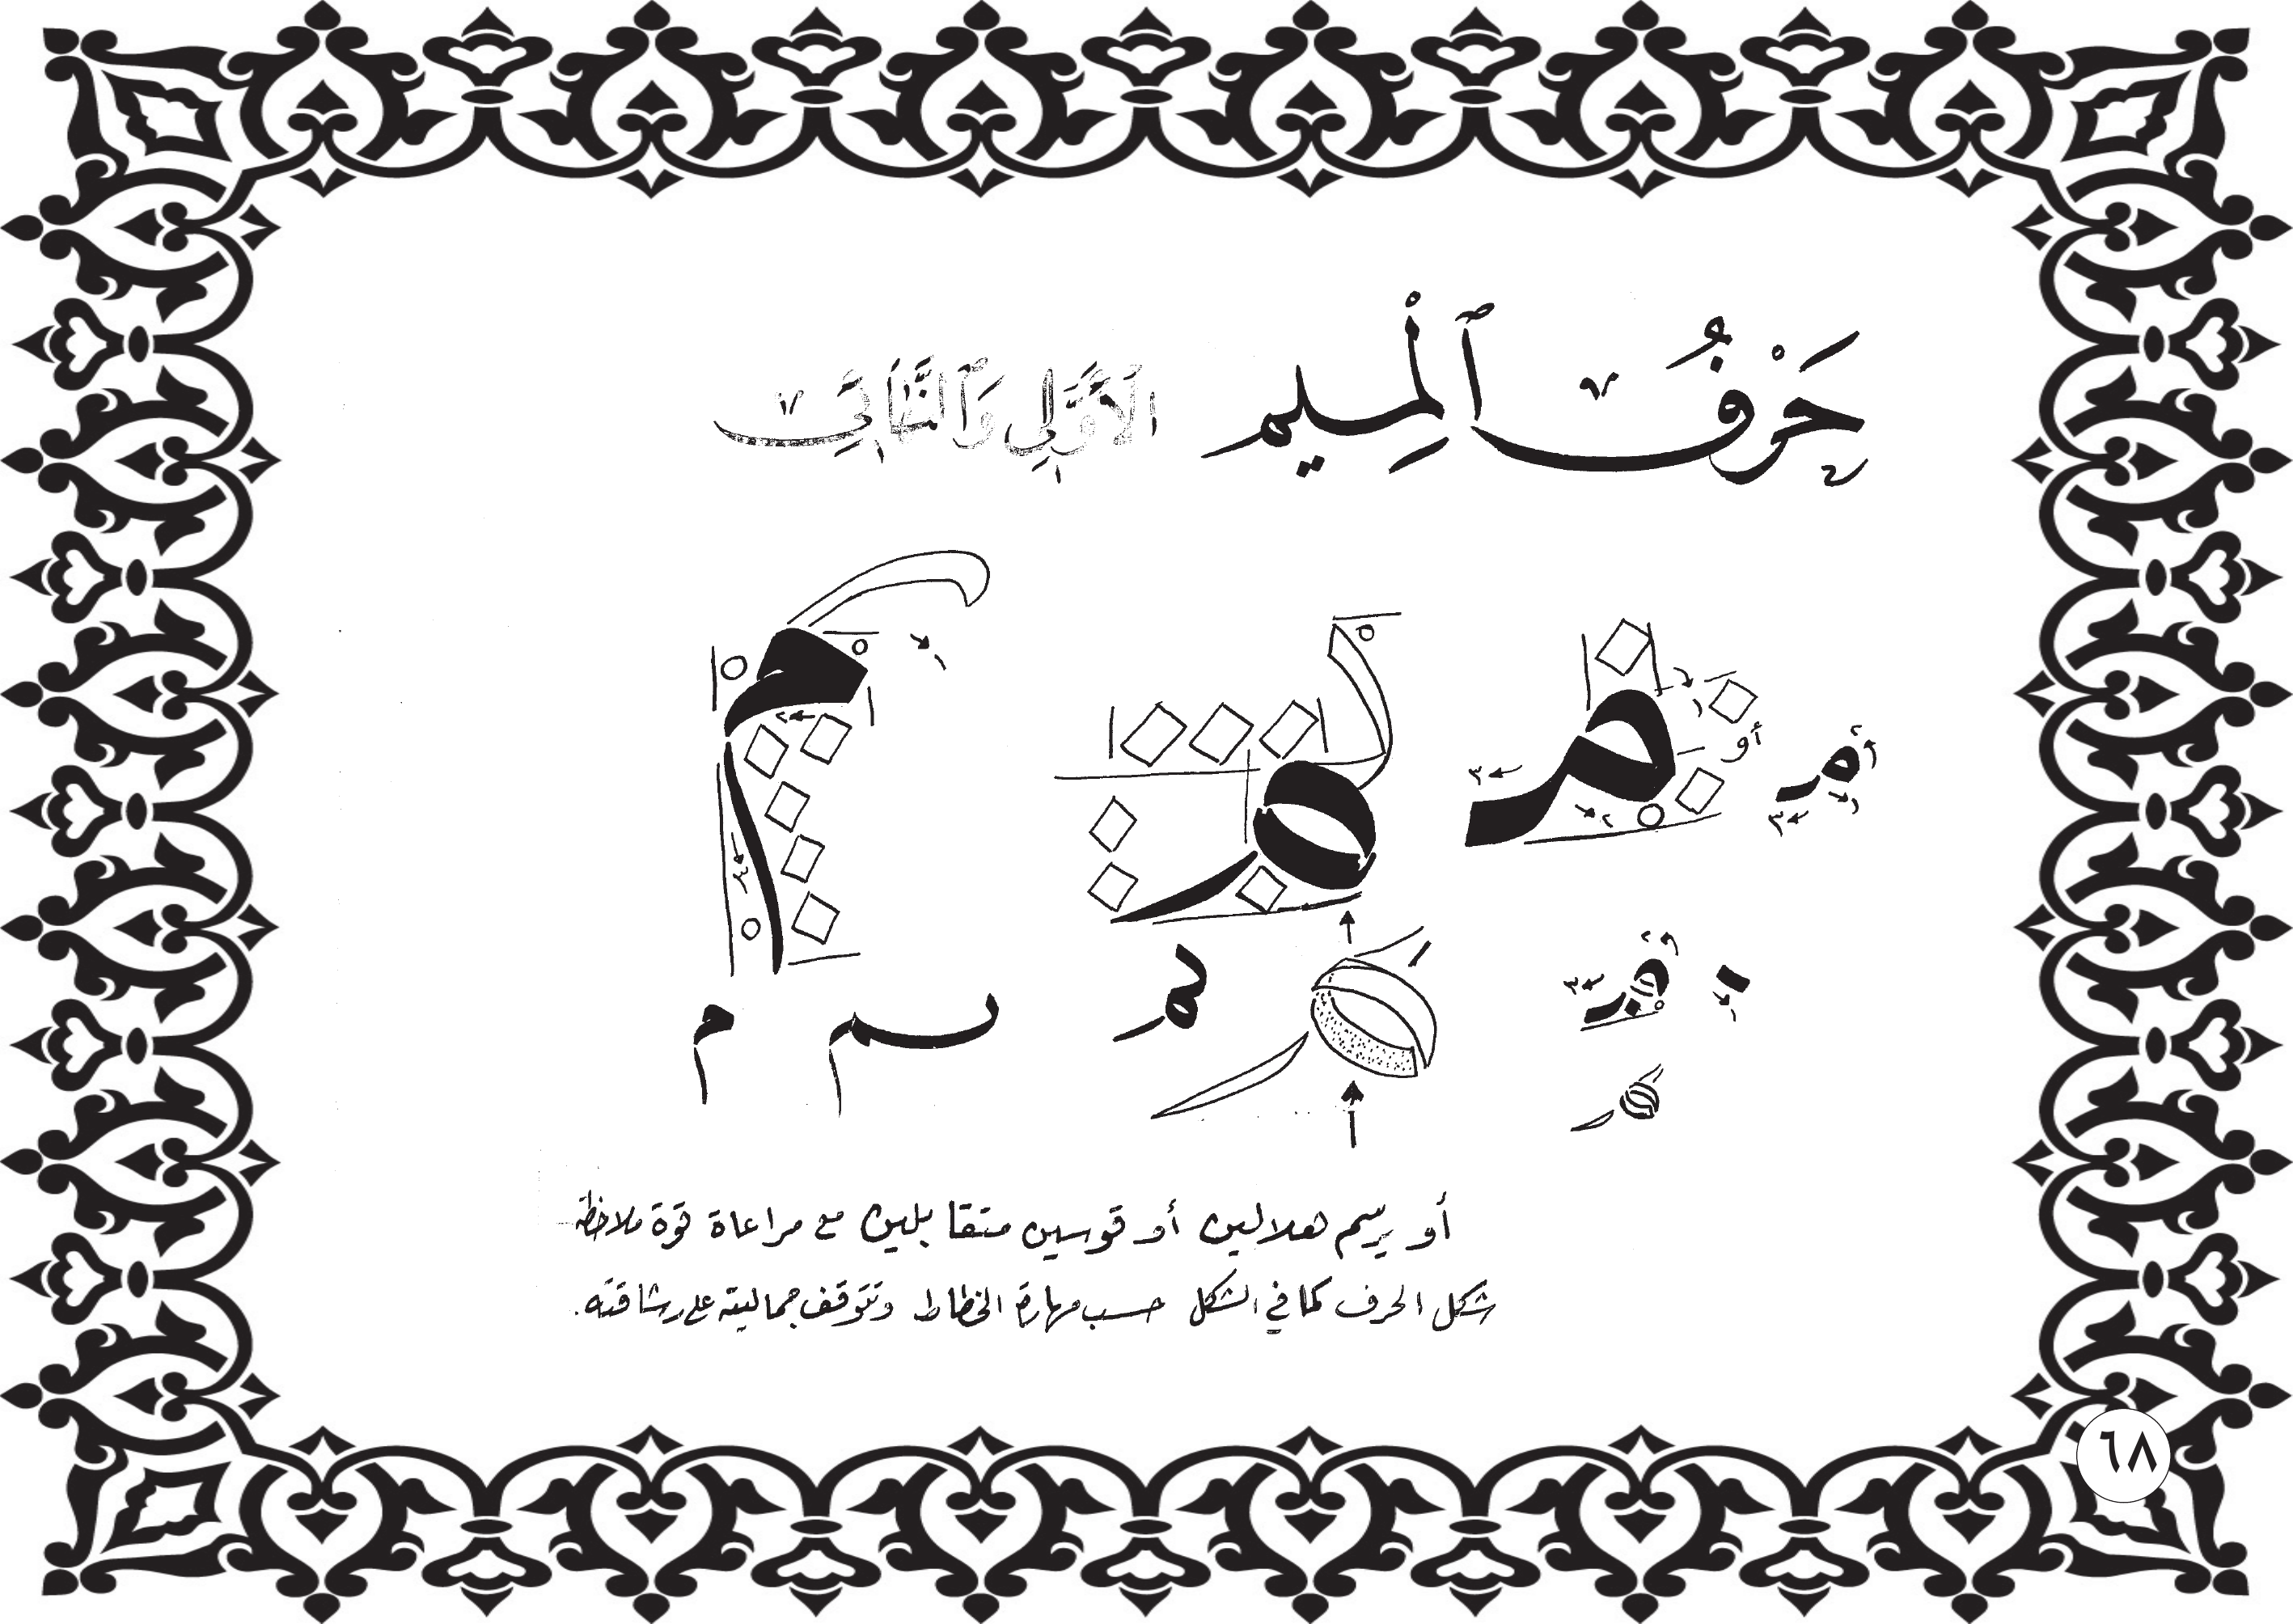 حَرْفُ ٱلْمِيم الأَوَّلِي وَٱلنِّهَائِي
أو
١ ٢ ٣
أو يرسم هلالين أو قوسين متقابلين مع مراعاة قوة ملاحظة
شكل الحرف كما في الشكل حسب مهارة الخطاط وتتوقف جمالية على رشاقته.
٦٨